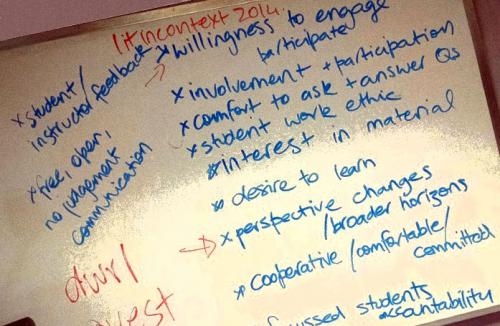 litincontext2014
x student/
instructor feedback
x free, open,
no judgement
communication
x willingness to engage
participate
x involvement + participation
x comfort to ask + answer Qs
x student work ethic
x interest in material
x desire to learn
→ x perspective changes
/broader horizons
x cooperative/comfortable/
committed
students
accountability